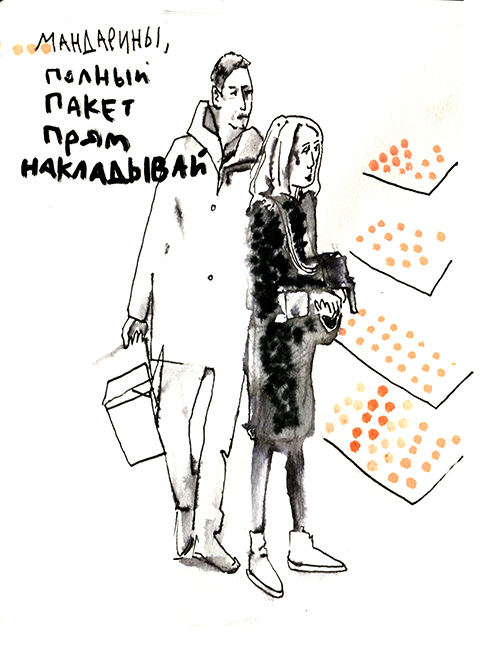 МАНДАРИНЫ,
ПОЛНЫЙ
ПАКЕТ
ПРЯМ
НАКЛАДЫВАЙ